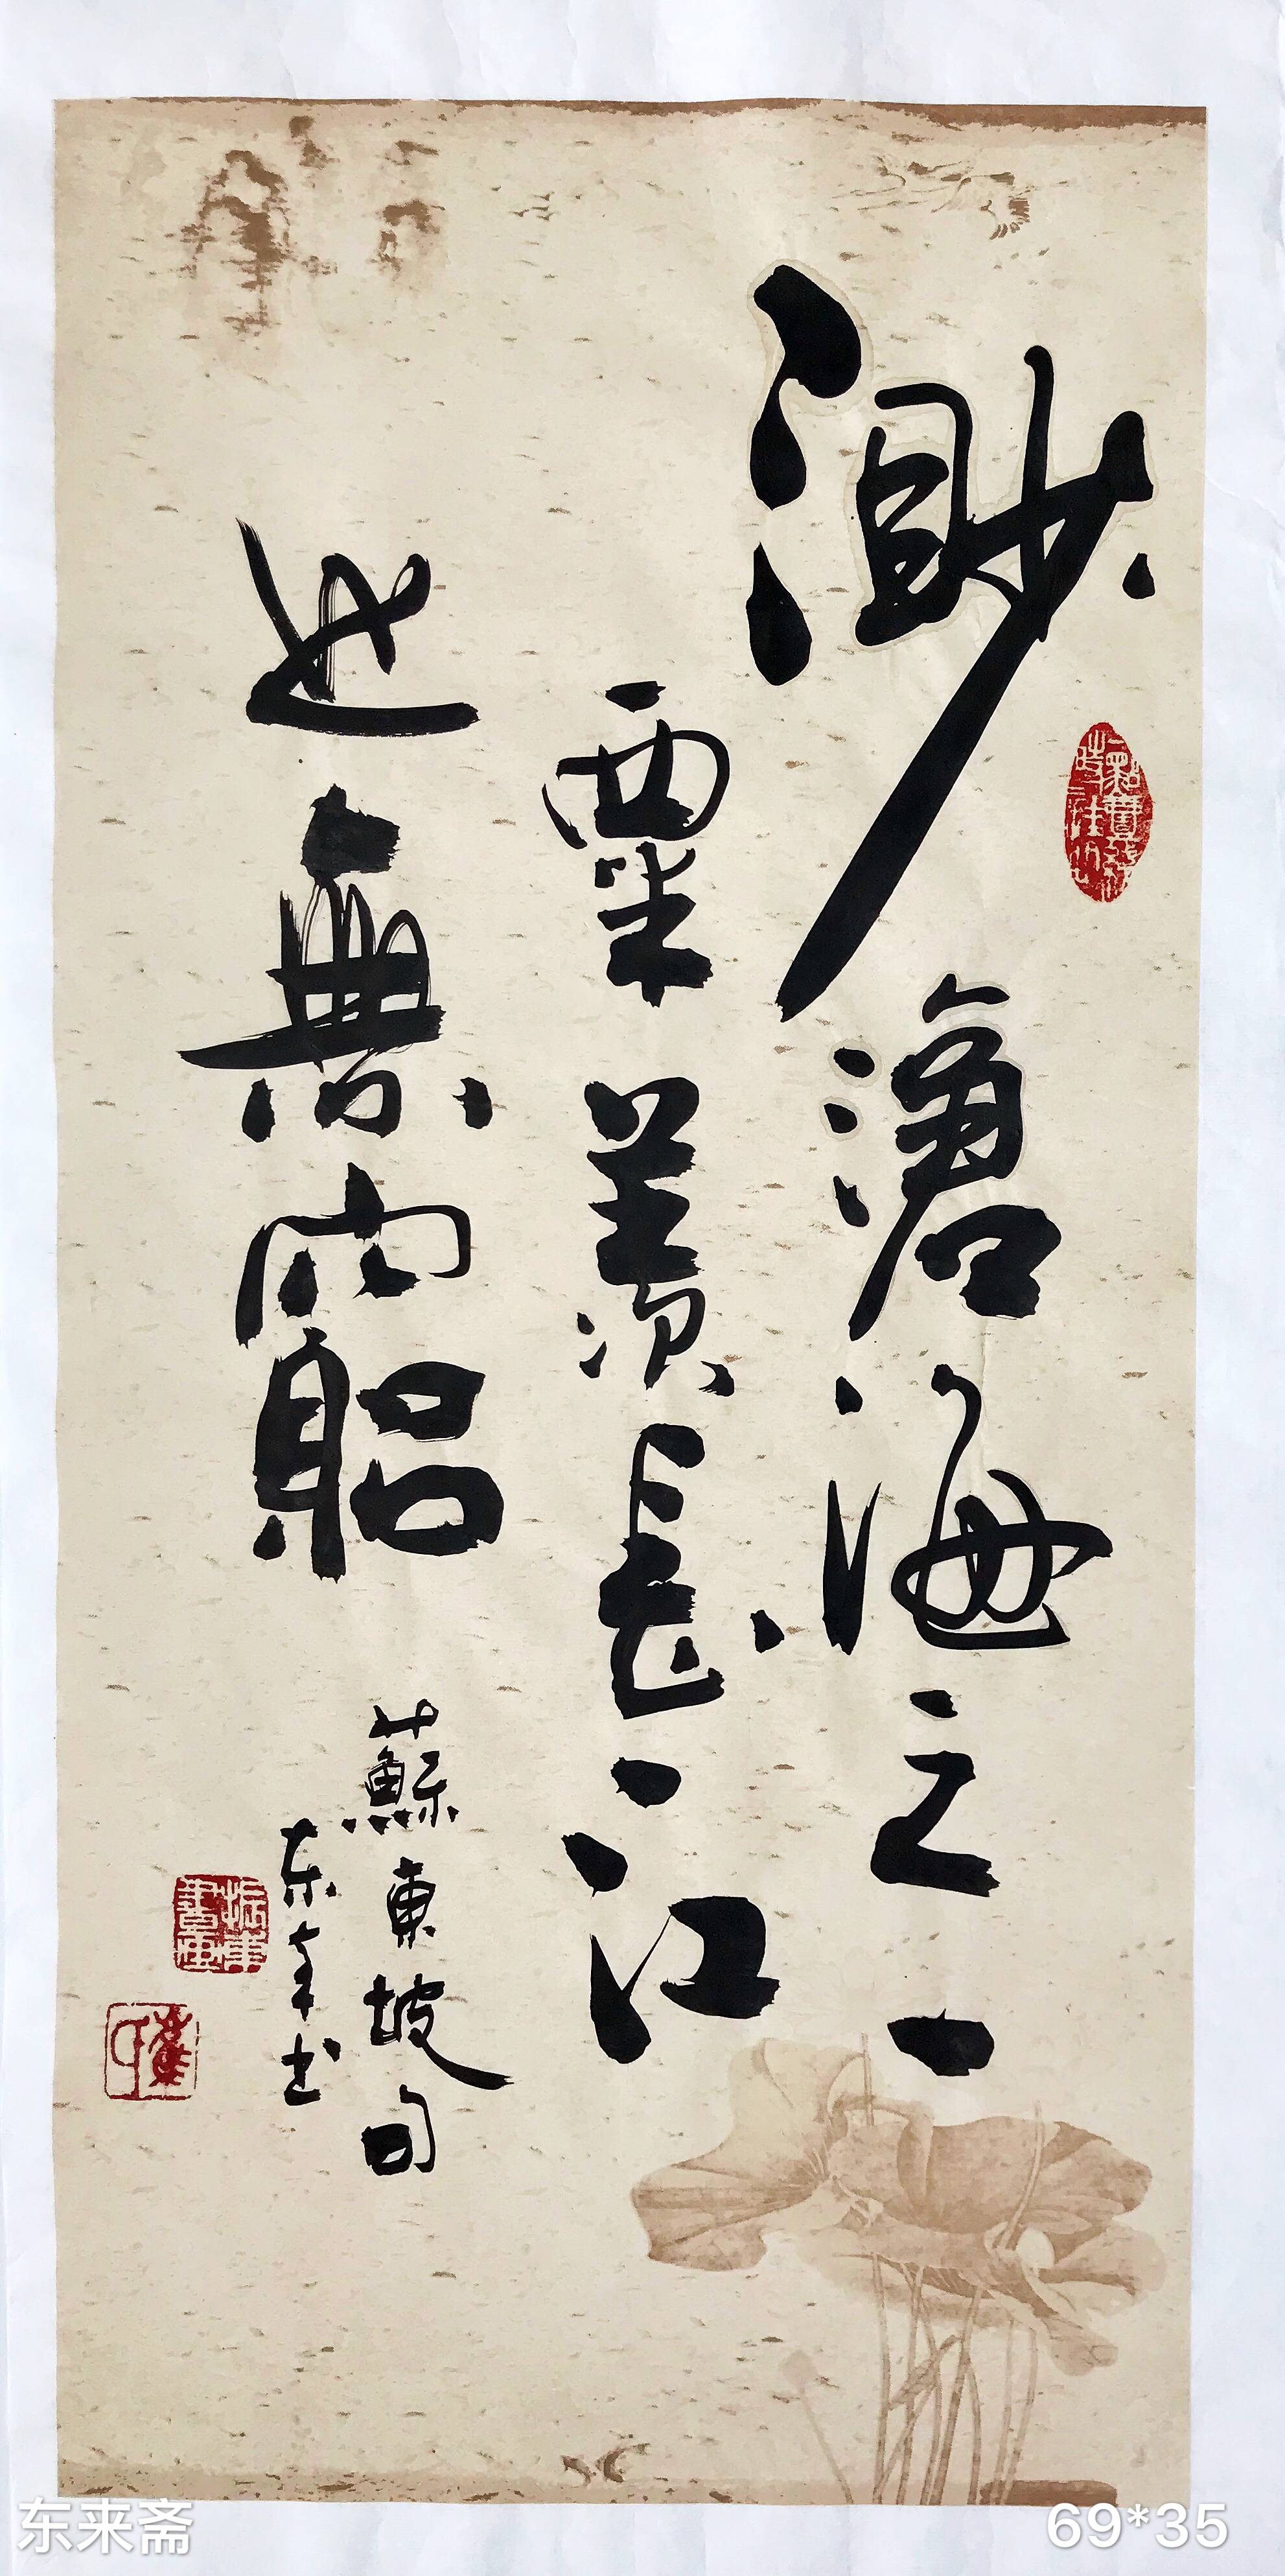 渺滄海之一
粟羨長江
之無竆
蘇東坡句
东 书
东来斋
69*35